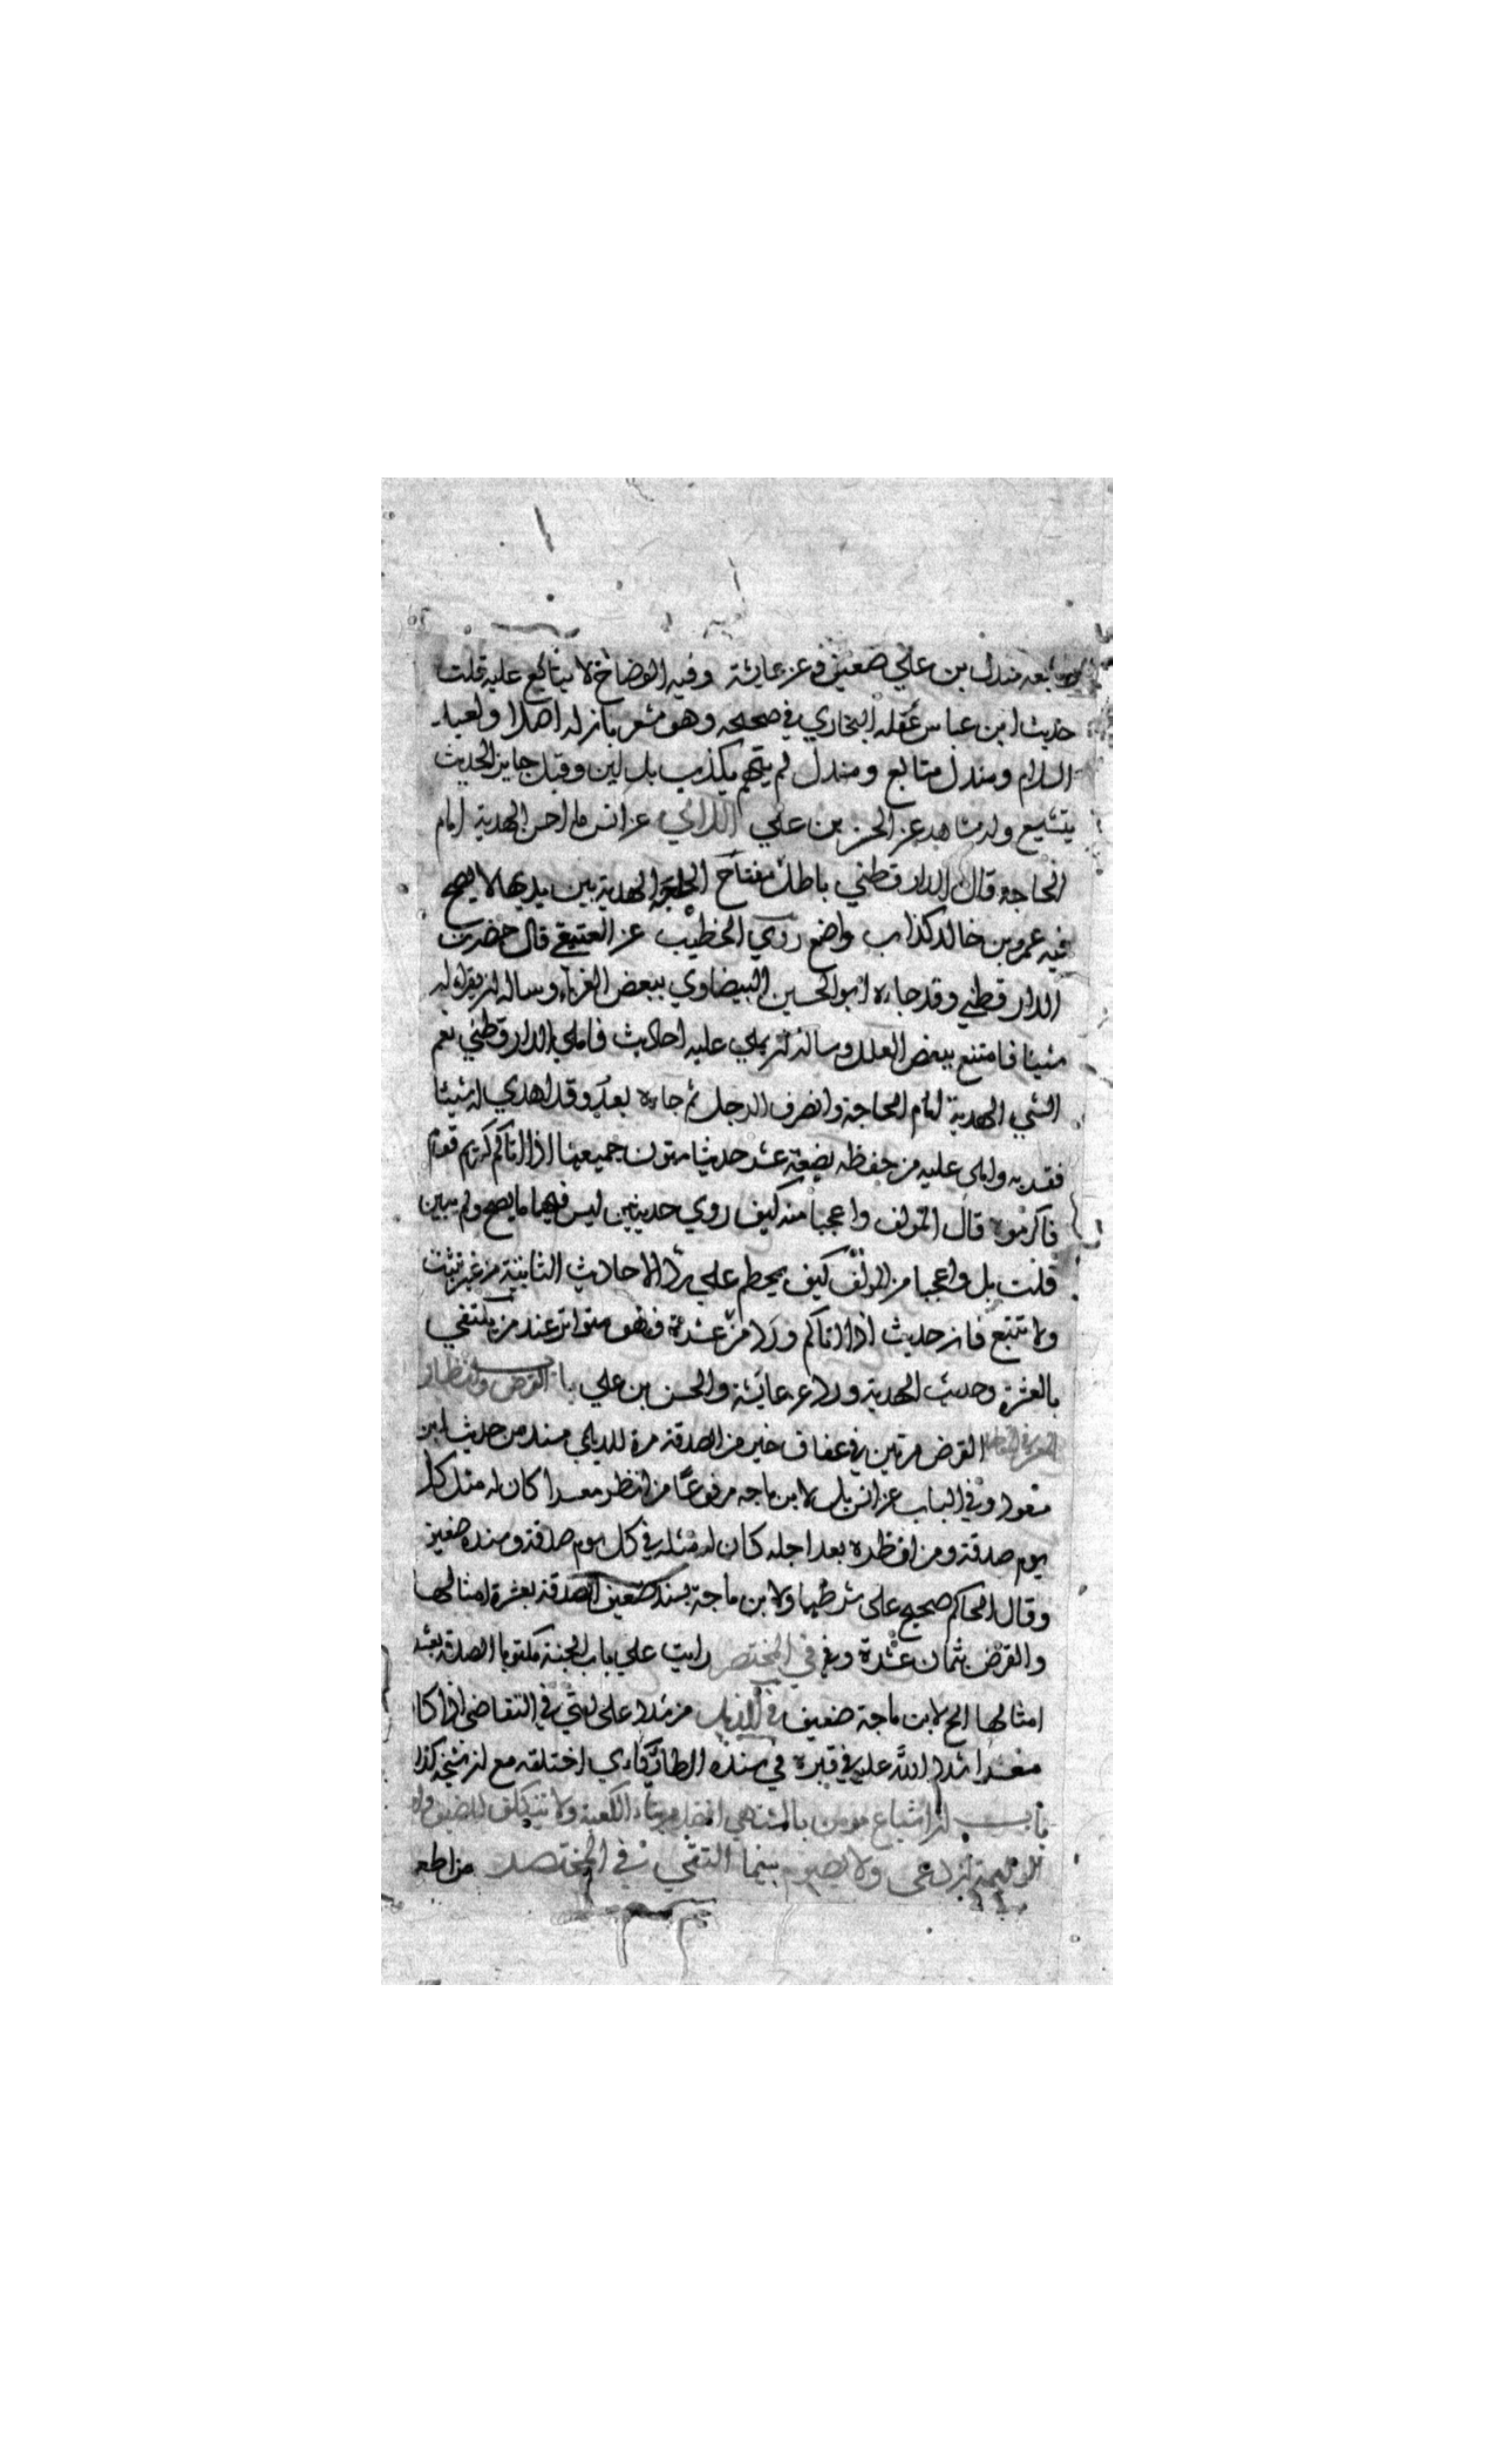 تابعه مندل بن علي ضعيف وعن عايشة وفيه الوضاح لا يتابع عليه قلت
حديث ابن عباس علقه البخاري في صحيحه وهو مشعر بان له اصلا ولعبد
السلام ومندل متابع ومندل لم يتهم بكذب بل لين وقيل جايز الحديث
يتشيع وله شاهد عن الحسن بن علي اللالي عن انس ما احسن الهدية امام
الحاجة قال الدارقطني باطل مفتاح الحاجة الهدية بين يديها لا يصح
فيه عمرو بن خالد كذاب واضع روي الخطيب عن العتيقي قال حضرت
الدارقطني وقد جاءه ابو الحسين البيضاوي ببعض الغرباء وساله ان يقراه له
شيئا فامتنع ببعض العلل وساله ان يملي عليه احاديث فاملي الدارقطني نعم
الشي الهدية امام الحاجة وانصرف الرجل ثم جاءه بعد وقد اهدي له شيئا
فقربه واملي عليه من حفظه بضعة عشر حديثا متون جميعها اذا اتاكم كريم قوم
فاكرموه قال المولف واعجبا منه كيف روي حديثين ليس فيهما ما يصح ولم يبين
قلت بل واعجبا من المولف كيف يحطم علي رد الاحاديث الثابتة من غير تثبت
ولا تتبع فان حديث اذا اتاكم ورد من عشرة فهو متواتر عند من يكتفي
بالعشرة وحديث الهدية ورد عن عايشة والحسن بن علي باب القرض وانظار
القرض مرتين في عفاف خير من الصدقة مرة للديلمي مسند من حديث ابن
مسعود وفي الباب عن انس بل لابن ماجه مرفوعا من انظر معسرا كان له مثل كل
يوم صدقة ومن انظره بعد اجله كان له مثله في كل يوم صدقة وسنده ضعيف
وقال الحاكم صحيح علي شرطهما ولابن ماجة بسند ضعيف الصدقة بعشرة امثالها
والقرض بثمان عشرة وفي المختصر رايت علي باب الجنة مكتوبا الصدقة بعشر
امثالها الخ لابن ماجة ضعيف في الذيل من شدد علي امتي في التقاضي اذا كا
معسرا شدد الله عليه في قبره في سنده الطايكاني اختلقه مع ان شيخه كذا
باب ان اشباع مومن بالمشتهي افضل من بناء الكعبة ولا يتكلف للضيف
الوليمة ان دعي ولا يصوم بينما التقي في المختصر من اطعم